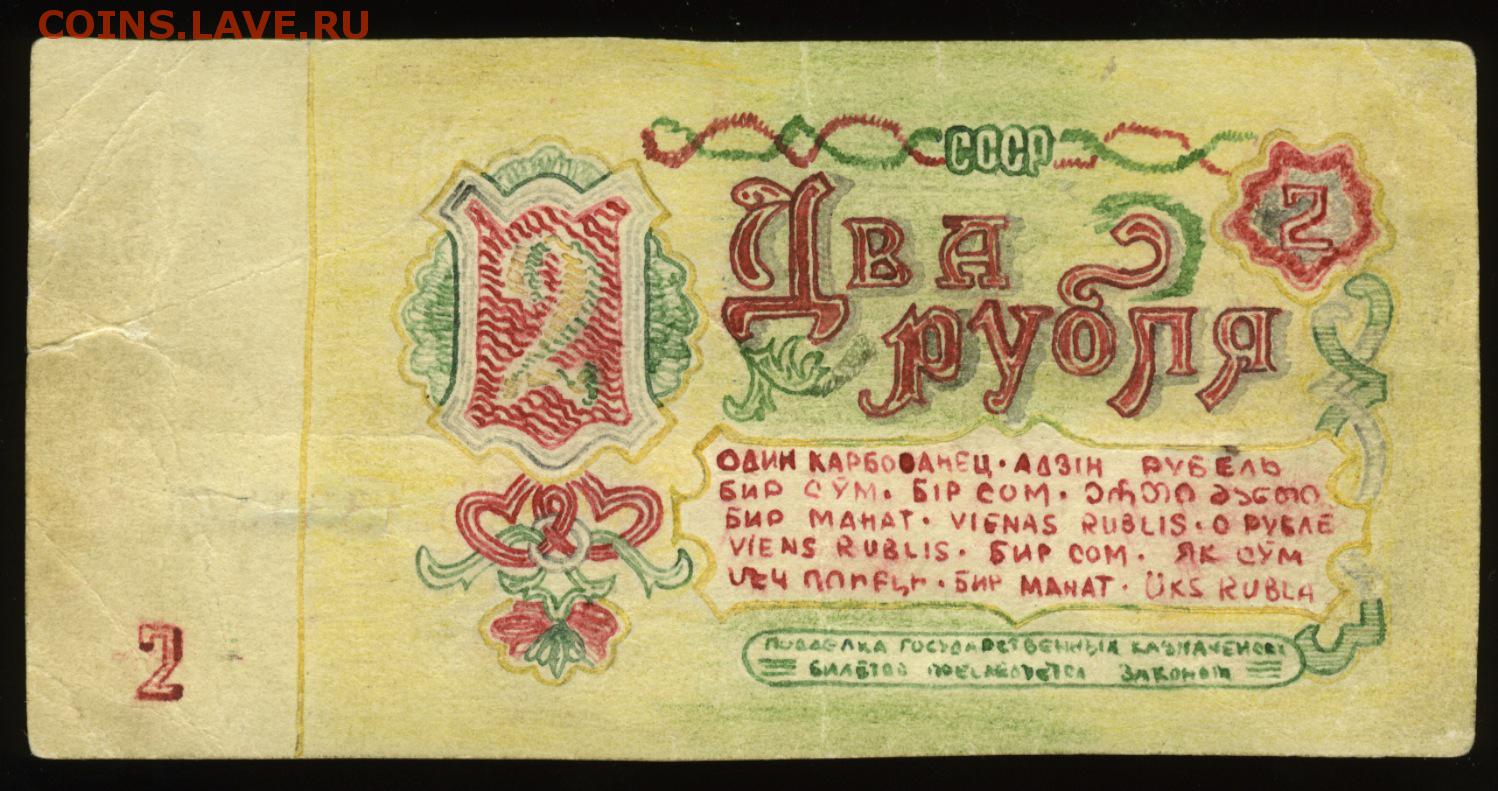 COINS.LAVE.RU
СССР
2
2
Два
рубля
ОДИН КАРБОВАНЕЦ · АДЗІН РУБЕЛЬ
БИР СЎМ · БІР СОМ · ერთი მანეთი
БИР МАНАТ · VIENAS RUBLIS · О РУБЛЕ
VIENS RUBLIS · БИР СОМ · ЯК СЎМ
ՄԵԿ ՌՈՒԲԼԻ · БИР МАНАТ · ÜKS RUBLA
ПОДДЕЛКА ГОСУДАРСТВЕННЫХ КАЗНАЧЕЙСК
БИЛЕТОВ ПРЕСЛЕДУЕТСЯ ЗАКОНОМ
2